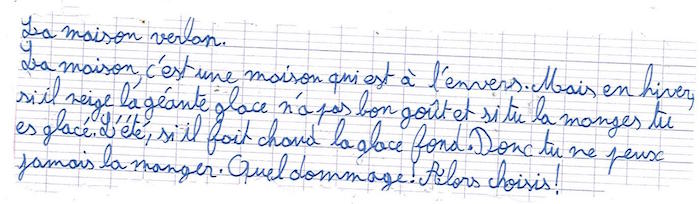 La maison verlan.
La maison, c'est une maison qui est à l'envers. Mais en hiver,
si il neige la géante glace n'a pas bon goût et si tu la manges tu
es glacé. L'été, si il fait chaud la glace fond. Donc tu ne peux
jamais la manger. Quel dommage! Alors choisis!